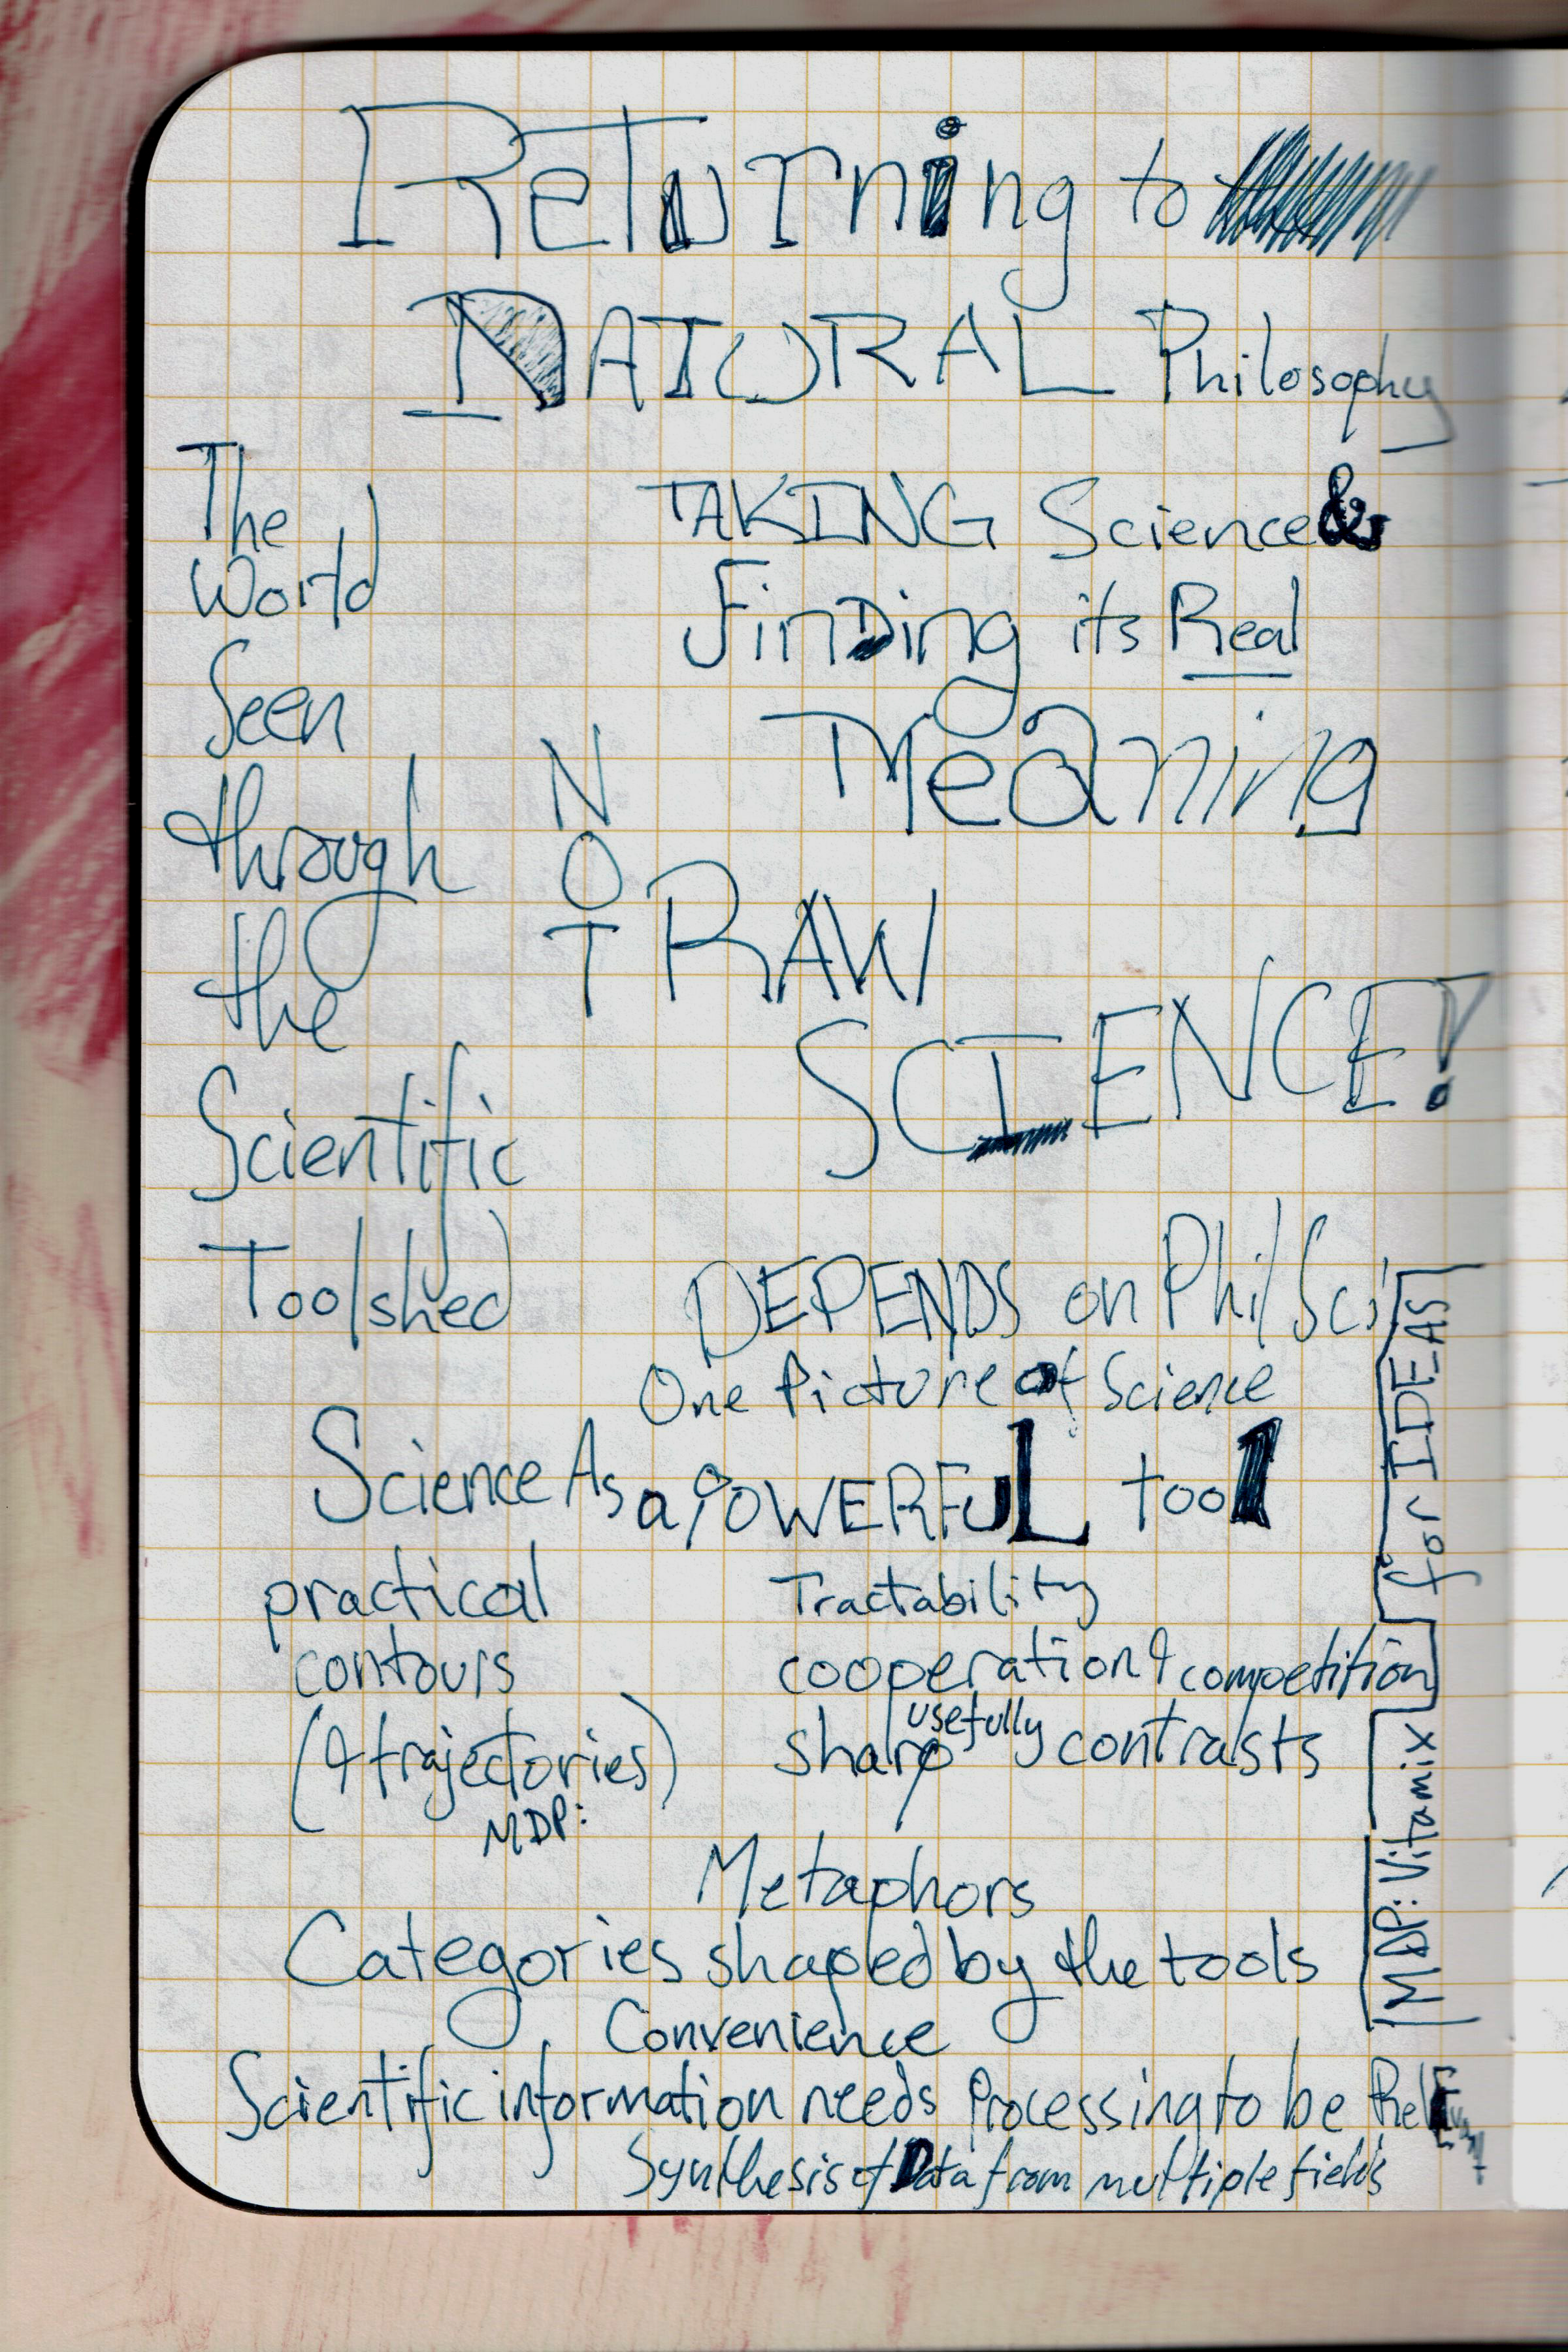 Returning to
NATURAL Philosophy
The
World
Seen
through
the
Scientific
Toolshed
TAKING Science &
Finding its Real
Meaning
NOT RAW
SCIENCE!
DEPENDS on Phil Sci
One Picture of Science
Science As a POWERFUL tool
practical
contours
(& trajectories)
MDP:
Tractability
cooperation & competition
sharp usefully contrasts
Metaphors
Categories shaped by the tools
Convenience
Scientific information needs Processing to be Relevant
Synthesis of Data from multiple fields
MDP: Vitamix
for IDEAS